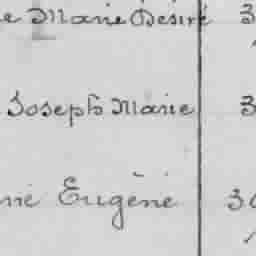 e Marie Désiré 3
Joseph Marie 3
rie Eugène 30